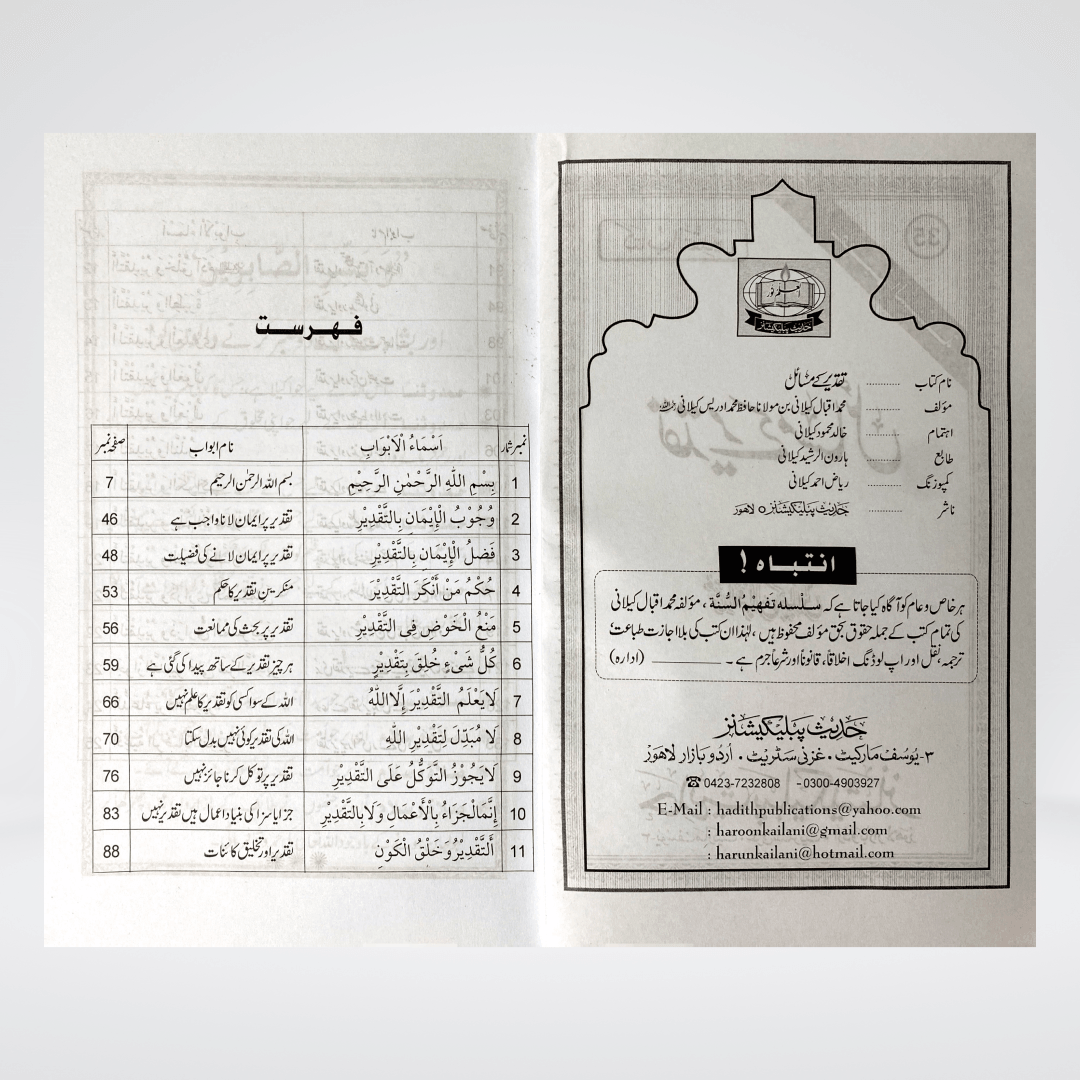 حدیث پبلیکیشنز
نام کتاب .......... تقدیر کے مسائل
مؤلف .......... محمد اقبال کیلانی بن مولانا حافظ محمد ادریس کیلانی
اہتمام .......... خالد محمود کیلانی
طابع .......... ہارون الرشید کیلانی
کمپوزنگ .......... ریاض احمد کیلانی
ناشر .......... حدیث پبلیکیشنز ○ لاہور
انتباہ !
ہر خاص و عام کو آگاہ کیا جاتا ہے کہ سلسلہ تفہیمُ السُّنۃ ، مؤلفہ محمد اقبال کیلانی
کی تمام کتب کے جملہ حقوق بحق مؤلف محفوظ ہیں ، لہٰذا ان کتب کی بلا اجازت طباعت ،
ترجمہ، نقل اور اپ لوڈنگ اخلاقاً، قانوناً اور شرعاً جرم ہے ۔ ــــــــــ (ادارہ)
حدیث پبلیکیشنز
۳-یوسف مارکیٹ ۰ غزنی سٹریٹ ۰ اُردو بازار لاہور
☎ 0423-7232808 -0300-4903927
E-Mail : hadithpublications@yahoo.com
: haroonkailani@gmail.com
: harunkailani@hotmail.com
فہرست
نمبر شمار اَسْمَاءُ الْاَبْوَابِ نام ابواب صفحہ نمبر
1 بِسْمِ اللّٰهِ الرَّحْمٰنِ الرَّحِيْمِ بسم اللہ الرحمٰن الرحیم 7
2 وُجُوْبُ الْإِيْمَانِ بِالتَّقْدِيْرِ تقدیر پر ایمان لانا واجب ہے 46
3 فَضْلُ الْإِيْمَانِ بِالتَّقْدِيْرِ تقدیر پر ایمان لانے کی فضیلت 48
4 حُكْمُ مَنْ أَنْكَرَ التَّقْدِيْرَ منکرینِ تقدیر کا حکم 53
5 مَنْعُ الْخَوْضِ فِى التَّقْدِيْرِ تقدیر پر بحث کی ممانعت 56
6 كُلُّ شَىْءٍ خُلِقَ بِتَقْدِيْرٍ ہر چیز تقدیر کے ساتھ پیدا کی گئی ہے 59
7 لَا يَعْلَمُ التَّقْدِيْرَ إِلَّا اللّٰهُ اللہ کے سوا کسی کو تقدیر کا علم نہیں 66
8 لَا مُبَدِّلَ لِتَقْدِيْرِ اللّٰهِ اللہ کی تقدیر کوئی نہیں بدل سکتا 70
9 لَا يَجُوْزُ التَّوَكُّلُ عَلَى التَّقْدِيْرِ تقدیر پر توکل کرنا جائز نہیں 76
10 إِنَّمَا الْجَزَاءُ بِالْأَعْمَالِ وَلَا بِالتَّقْدِيْرِ جزا یا سزا کی بنیاد اعمال ہیں تقدیر نہیں 83
11 اَلتَّقْدِيْرُ وَخَلْقُ الْكَوْنِ تقدیر اور تخلیق کائنات 88